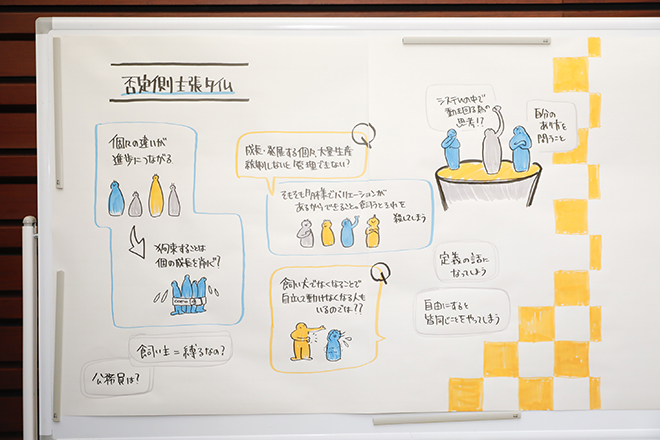 否定側主張タイム
個々の違いが
進歩につながる
拘束することは
個の成長を削ぐ?
飼い主=縛るなの?
公務員は?
Q
成長・発展する個々、大量生産
統制しないと管理できない?
そもそも多様でバリエーションが
あるからできること。飼うとそれを
殺してしまう
Q
飼い犬でなくなることで
自立して動けなくなる人も
いるのでは??
システムの中で
動き回るが
思考!?
自分の
あり方を
問うこと
定義の話に
なってしまう
自由にすると
皆同じことをやってしまう